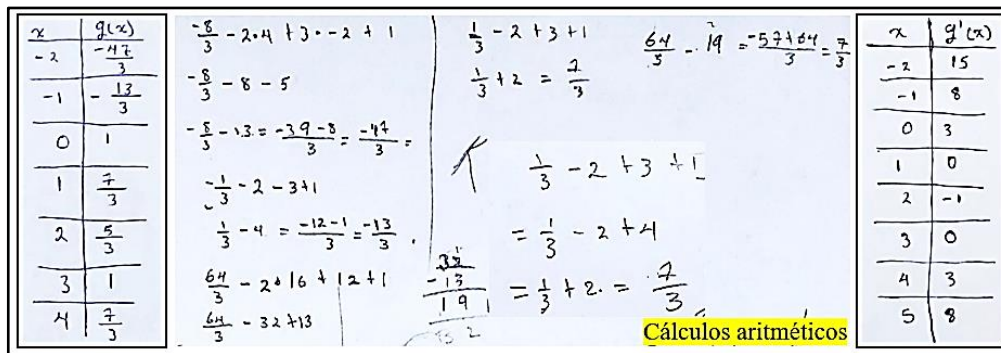 x | g(x)
-2 | -47/3
-1 | -13/3
0 | 1
1 | 7/3
2 | 5/3
3 | 1
4 | 7/3
-8/3 - 2·4 + 3·-2 + 1
-8/3 - 8 - 5
-8/3 - 13 = -39-8/3 = -47/3 =
-1/3 - 2 - 3+1
1/3 - 4 = -12-1/3 = -13/3 .
64/3 - 2·16 + 12 + 1
64/3 - 32 + 13
1/3 - 2 + 3 + 1
1/3 + 2 = 7/3
1/3 - 2 + 3 + 1
= 1/3 - 2 + 4
= 1/3 + 2 . = 7/3
32
-13
19
64/3 - 19 = -57+64/3 = 7/3
Cálculos aritméticos
x | g'(x)
-2 | 15
-1 | 8
0 | 3
1 | 0
2 | -1
3 | 0
4 | 3
5 | 8